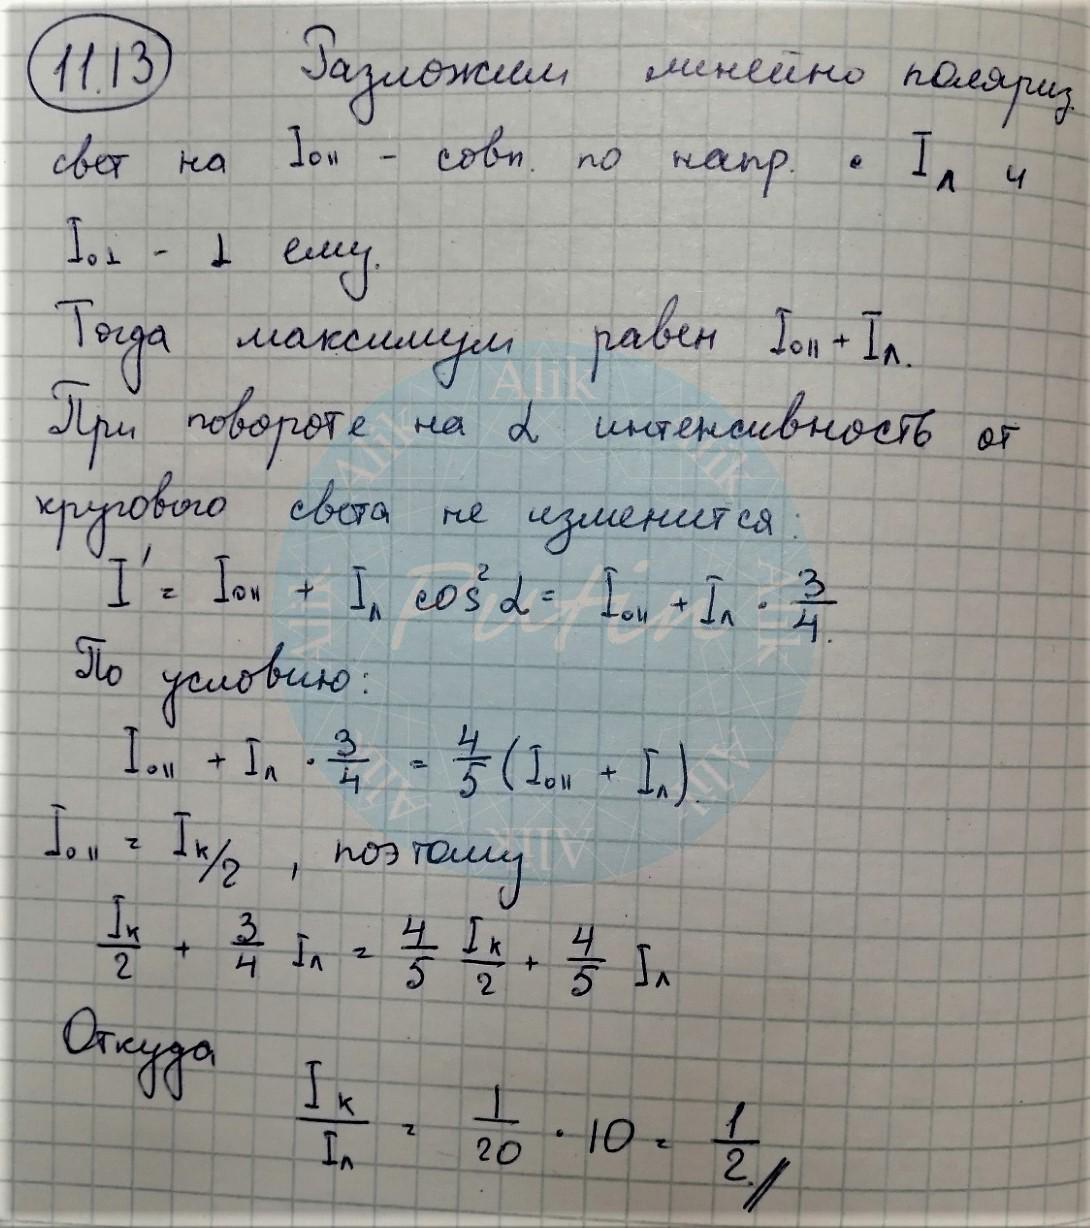 11.13 Разложим линейно поляриз.
свет на I₀|| - совп. по напр. с I_л и
I₀⊥ - ⊥ ему.
Тогда максимум равен I₀|| + I_л.
При повороте на α интенсивность от
кругового света не изменится:
I' = I₀|| + I_л cos²α = I₀|| + I_л · 3/4.
По условию:
I₀|| + I_л · 3/4 = 4/5 (I₀|| + I_л).
I₀|| = I_к/2, поэтому
I_к/2 + 3/4 I_л = 4/5 I_к/2 + 4/5 I_л
Откуда
I_к/I_л = 1/20 · 10 = 1/2 //
Alik
Alik
Alik
Alik
Alik
Alik
Alik
Alik
Putin